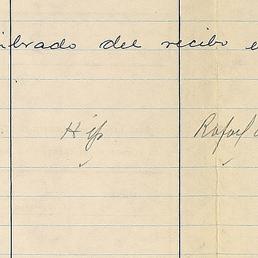 ibrado del recibo e
Hip Rafael